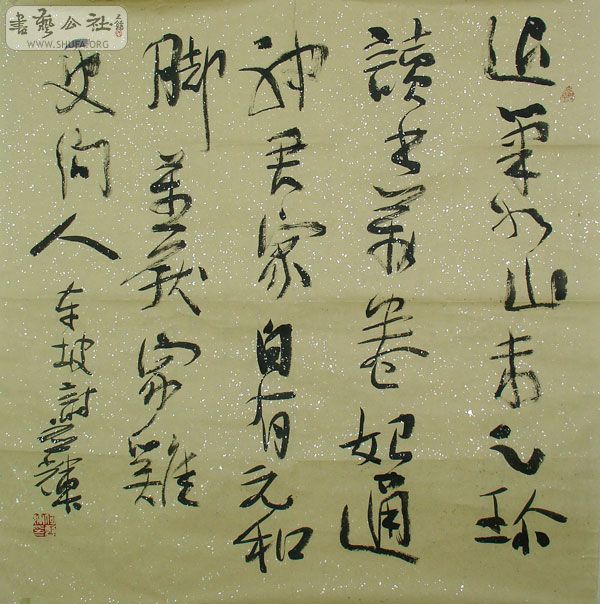 書藝公社
WWW.SHUFA.ORG
退筆如山未足珍
讀书萬卷始通
神君家自有元和
脚莫厭家雞
更問人
东坡詩